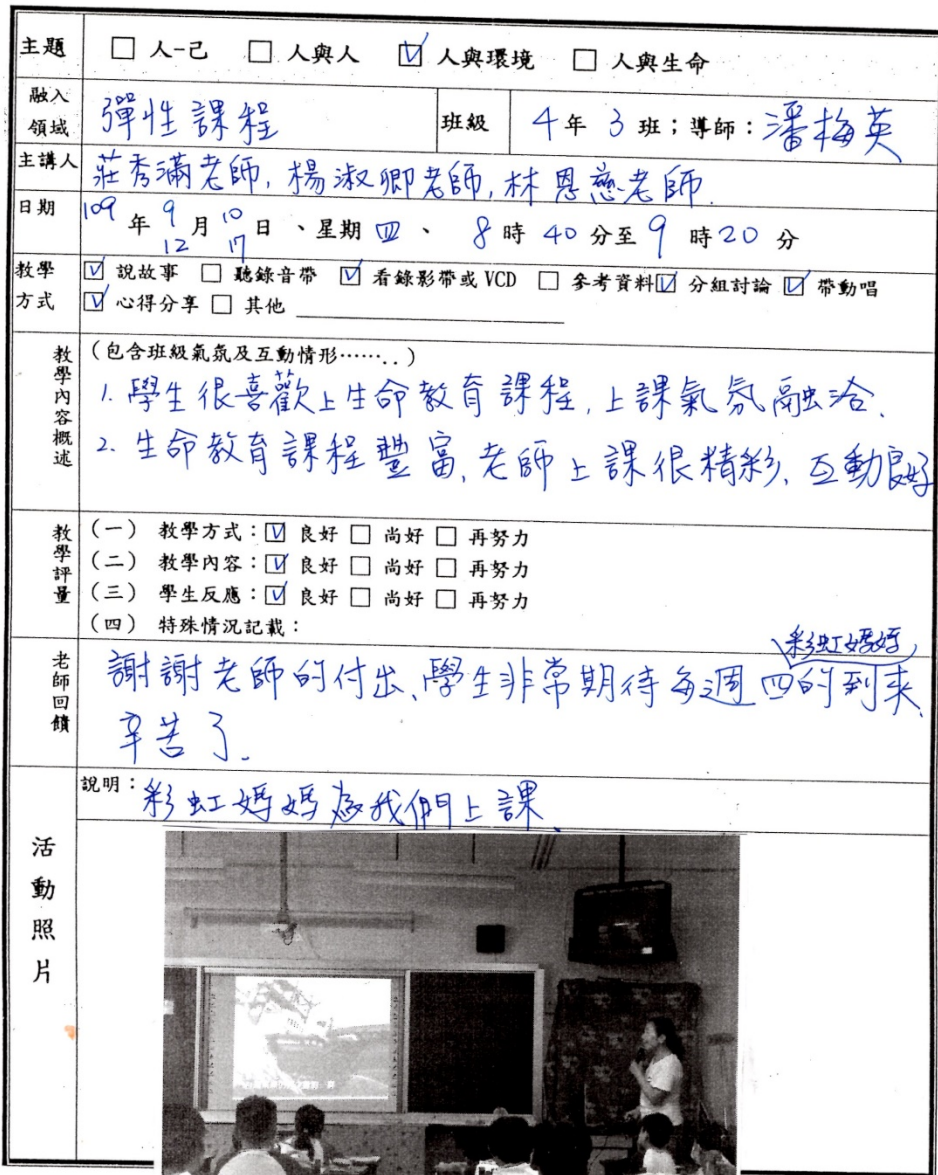 主題 □ 人-己 □ 人與人 ☑ 人與環境 □ 人與生命
融入領域 彈性課程 班級 4年3班；導師：潘梅英
主講人 莊秀滿老師,楊淑卿老師,林恩慈老師.
日期 109年9月10日、星期四、8時40分至9時20分
12 17
教學方式 ☑ 說故事 □ 聽錄音帶 ☑ 看錄影帶或VCD □ 參考資料 ☑ 分組討論 ☑ 帶動唱
☑ 心得分享 □ 其他
教學內容概述 （包含班級氣氛及互動情形……..）
1. 學生很喜歡上生命教育課程,上課氣氛融洽.
2. 生命教育課程豐富,老師上課很精彩、互動良好
教學評量 （一） 教學方式：☑ 良好 □ 尚好 □ 再努力
（二） 教學內容：☑ 良好 □ 尚好 □ 再努力
（三） 學生反應：☑ 良好 □ 尚好 □ 再努力
（四） 特殊情況記載：
彩虹媽媽
老師回饋 謝謝老師的付出、學生非常期待每週四的到來、
辛苦了.
說明：彩虹媽媽為我們上課.
活動照片